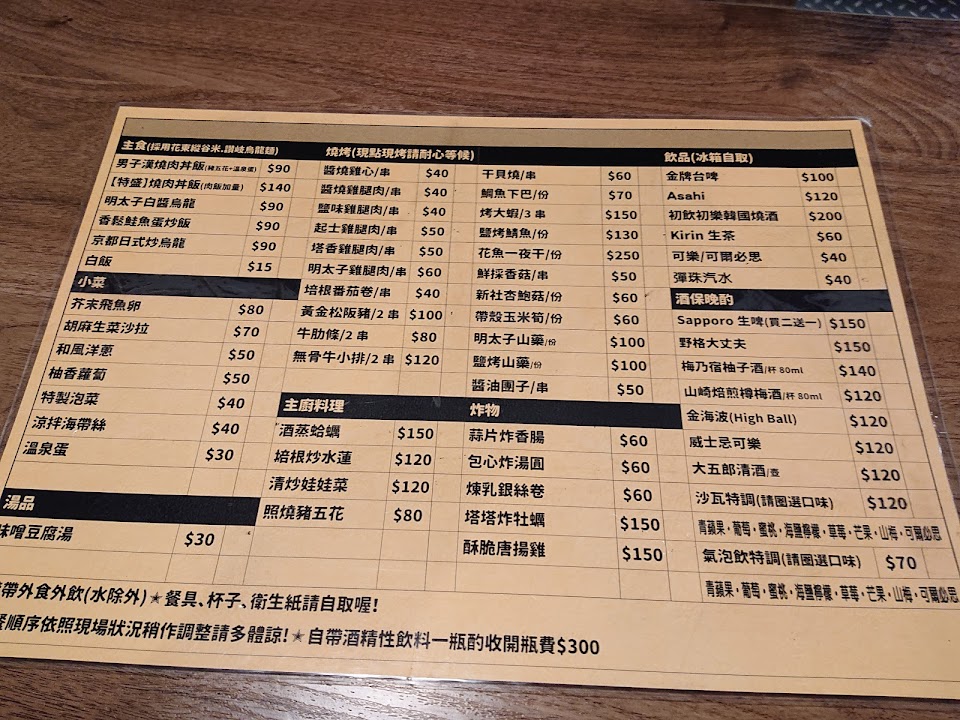 主食(採用花東縱谷米.讃岐烏龍麵)
男子漢燒肉丼飯(豬五花+溫泉蛋) $90
【特盛】燒肉丼飯(肉飯加量) $140
明太子白醬烏龍 $90
香鬆鮭魚蛋炒飯 $90
京都日式炒烏龍 $90
白飯 $15
小菜
芥末飛魚卵 $80
胡麻生菜沙拉 $70
和風洋蔥 $50
柚香蘿蔔 $50
特製泡菜 $40
涼拌海帶絲 $40
溫泉蛋 $30
湯品
味噌豆腐湯 $30
燒烤(現點現烤請耐心等候)
醬燒雞心/串 $40
醬燒雞腿肉/串 $40
鹽味雞腿肉/串 $40
起士雞腿肉/串 $50
塔香雞腿肉/串 $50
明太子雞腿肉/串 $60
培根番茄卷/串 $40
黃金松阪豬/2 串 $100
牛肋條/2 串 $80
無骨牛小排/2 串 $120
主廚料理
酒蒸蛤蠣 $150
培根炒水蓮 $120
清炒娃娃菜 $120
照燒豬五花 $80
干貝燒/串 $60
鯛魚下巴/份 $70
烤大蝦/3 串 $150
鹽烤鯖魚/份 $130
花魚一夜干/份 $250
鮮採香菇/串 $50
新社杏鮑菇/份 $60
帶殼玉米筍/份 $60
明太子山藥/份 $100
鹽烤山藥/份 $100
醬油團子/串 $50
炸物
蒜片炸香腸 $60
包心炸湯圓 $60
煉乳銀絲卷 $60
塔塔炸牡蠣 $150
酥脆唐揚雞 $150
飲品(冰箱自取)
金牌台啤 $100
Asahi $120
初飲初樂韓國燒酒 $200
Kirin 生茶 $60
可樂/可爾必思 $40
彈珠汽水 $40
酒保晚酌
Sapporo 生啤(買二送一) $150
野格大丈夫 $150
梅乃宿柚子酒/杯 80ml $140
山崎焙煎樽梅酒/杯 80ml $120
金海波(High Ball) $120
威士忌可樂 $120
大五郎清酒/壺 $120
沙瓦特調(請圈選口味) $120
青蘋果・葡萄・蜜桃・海鹽檸檬・草莓・芒果・山梅・可爾必思
氣泡飲特調(請圈選口味) $70
青蘋果・葡萄・蜜桃・海鹽檸檬・草莓・芒果・山梅・可爾必思
帶外食外飲(水除外)★餐具、杯子、衛生紙請自取喔!
順序依照現場狀況稍作調整請多體諒!★自帶酒精性飲料一瓶酌收開瓶費$300